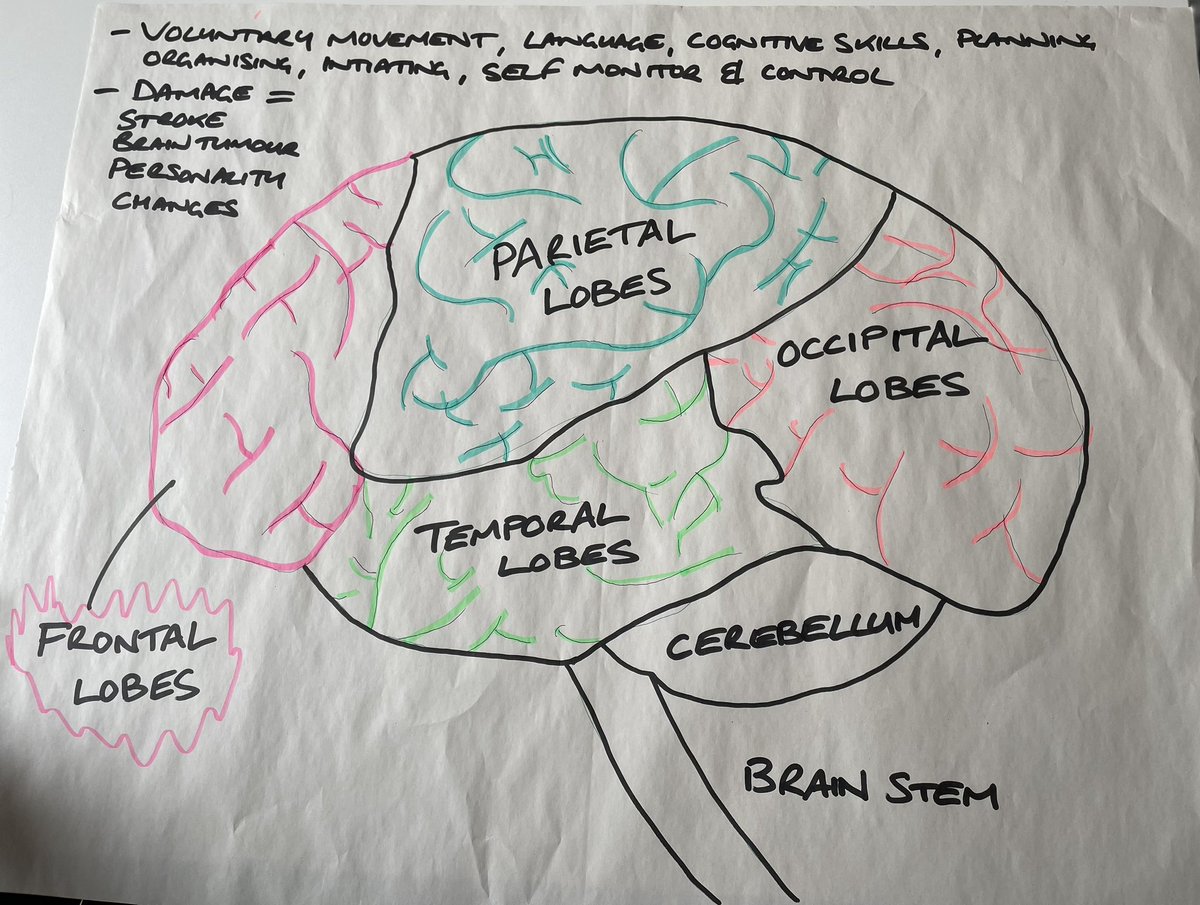 - VOLUNTARY MOVEMENT, LANGUAGE, COGNITIVE SKILLS, PLANNING
ORGANISING, INITIATING, SELF MONITOR & CONTROL
- DAMAGE =
STROKE
BRAIN TUMOUR
PERSONALITY
CHANGES
PARIETAL
LOBES
OCCIPITAL
LOBES
TEMPORAL
LOBES
FRONTAL
LOBES
CEREBELLUM
BRAIN STEM